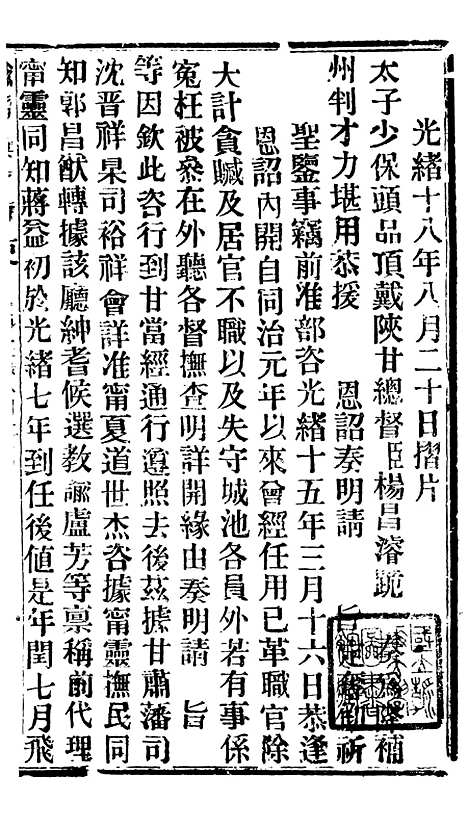 光緒十八年八月二十日摺片
太子少保頭品頂戴陝甘總督臣楊昌濬跪 補
州判才力堪用恭援 恩詔奏明請 旨 祈
聖鑒事竊前准部咨光緒十五年三月十六日恭逢
恩詔內開自同治元年以來曾經任用已革職官除
大計貪贓及居官不職以及失守城池各員外若有事係
寃枉被叅在外聽各督撫查明詳開緣由奏明請 旨
等因欽此咨行到甘當經通行遵照去後茲據甘肅藩司
沈晋祥臬司裕祥會詳准甯夏道世杰咨據甯靈撫民同
知郭昌猷轉據該廳紳耆候選教諭盧芳等稟稱前代理
甯靈同知蔣益初於光緒七年到任後值是年閏七月飛